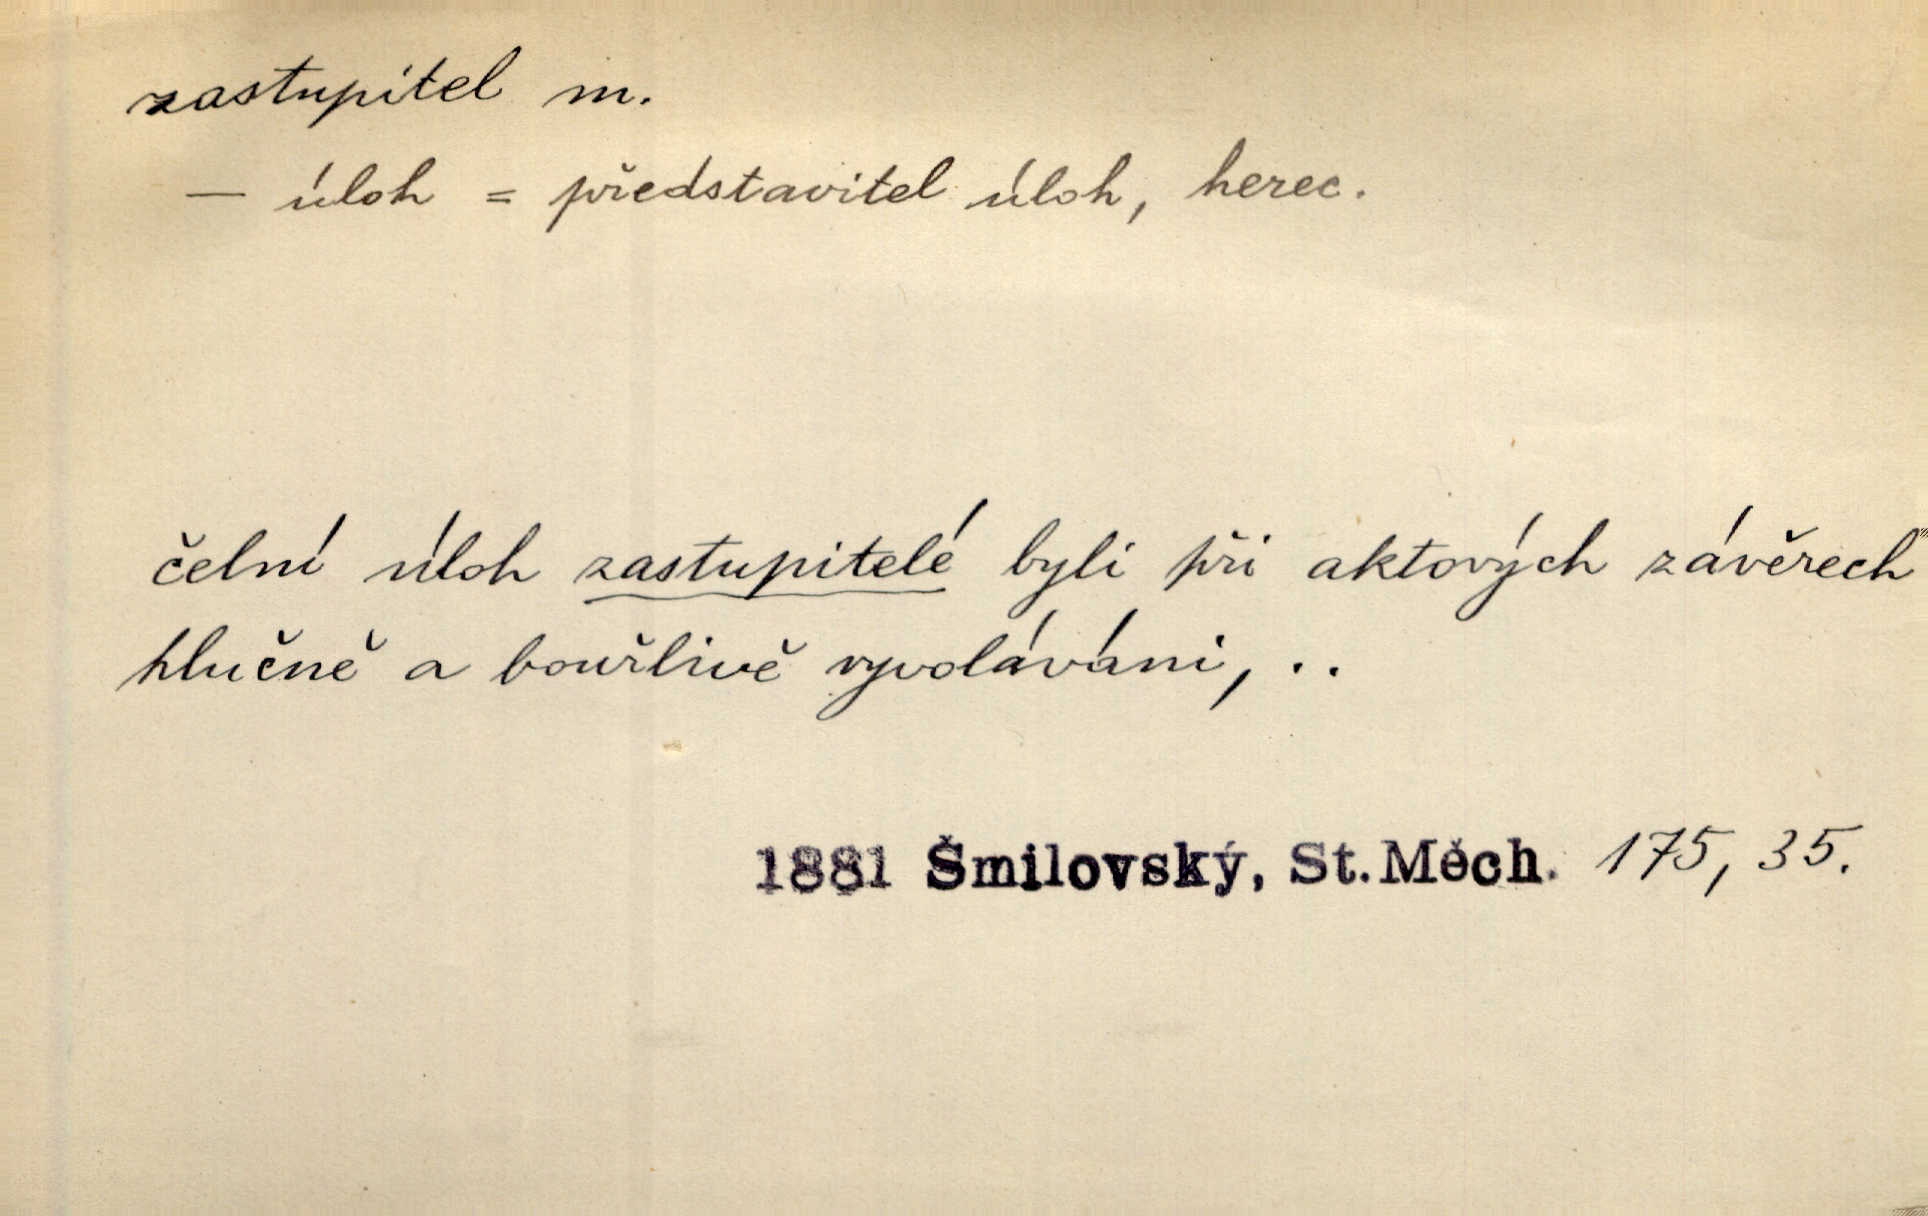 zastupitel m.
— úloh = představitel úloh, herec.
čelní úloh zastupitelé byli při aktových závěrech
hlučně a bouřlivě vyvoláváni, ..
1881 Šmilovský, St. Měch. 175, 35.